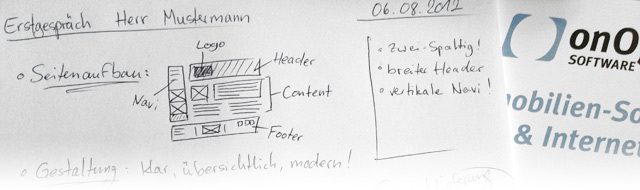 Erstgespräch Herr Mustermann
06.08.2012
Logo
Seitenaufbau:
Header
Navi
Content
Footer
Gestaltung: klar, übersichtlich, modern!
zwei-Spaltig!
breiter Header
vertikale Navi!
onO
SOFTWARE
obilien-So
& Internet